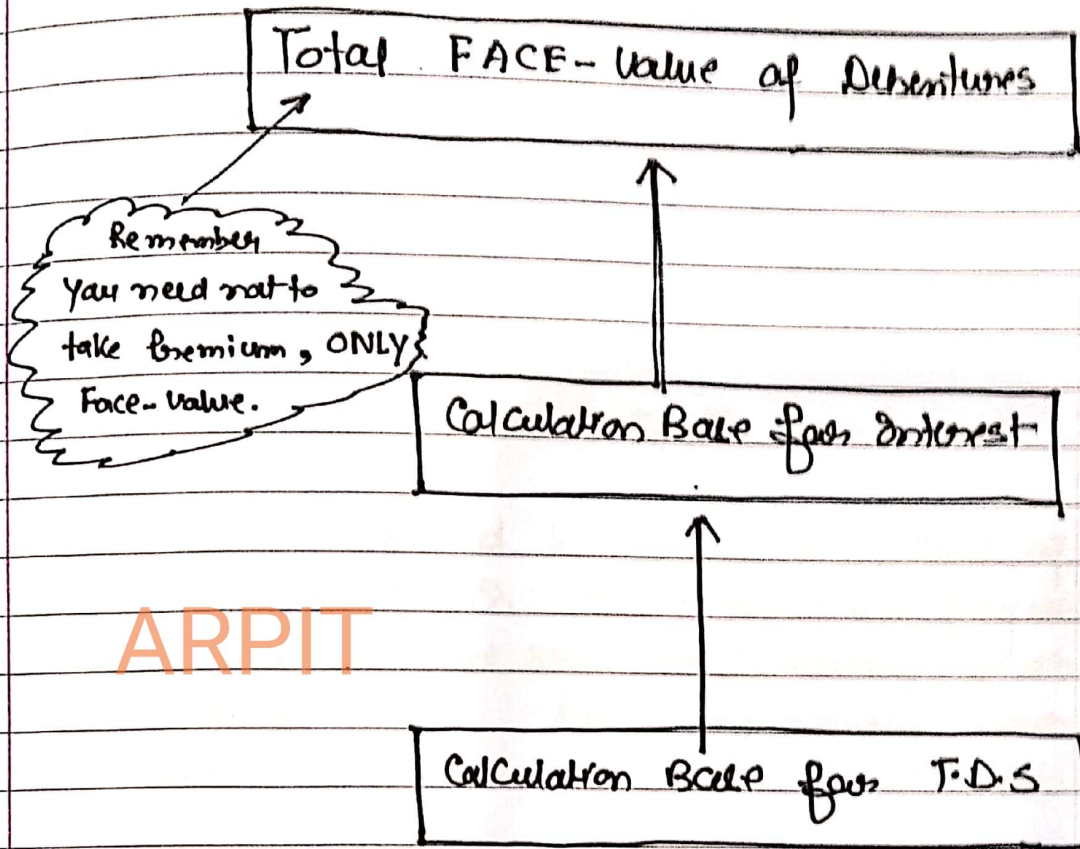 Total FACE-Value of Debentures
Remember
You need not to
take Premium, ONLY
Face-Value.
Calculation Base for Interest
ARPIT
Calculation Base for T.D.S